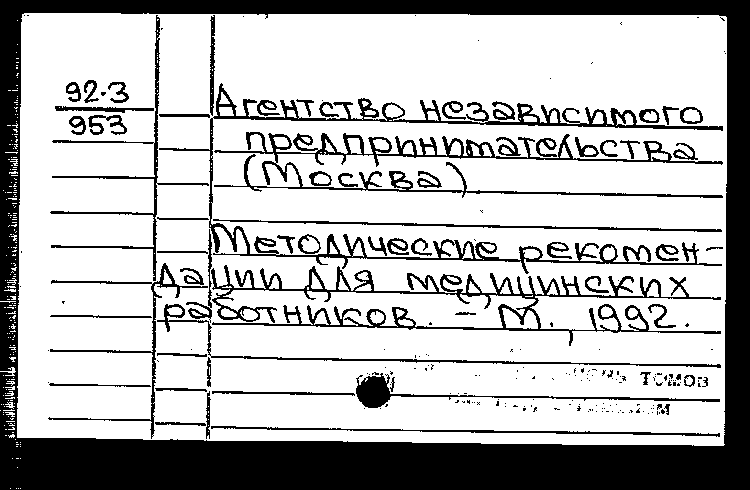 92-3
953
Агентство независимого
предпринимательства
(Москва)
Методические рекомен-
дации для медицинских
работников. - М., 1992.
ТОМОВ